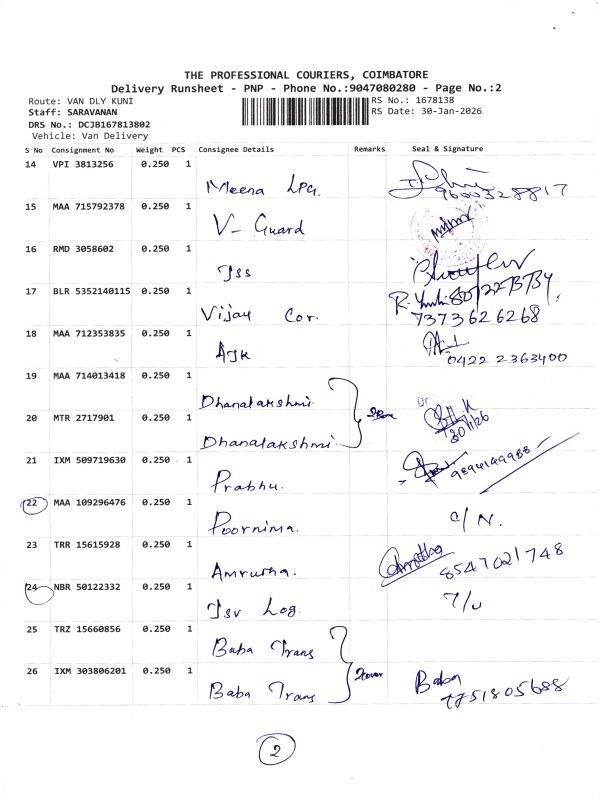 THE PROFESSIONAL COURIERS, COIMBATORE
Delivery Runsheet - PNP - Phone No.:9047080280 - Page No.:2
Route: VAN DLY KUNI
RS No.: 1678138
Staff: SARAVANAN
RS Date: 30-Jan-2026
DRS No.: DCJB167813802
Vehicle: Van Delivery
S No Consignment No Weight PCS Consignee Details Remarks Seal & Signature
14 VPI 3813256 0.250 1
Meena LPG. 
15 MAA 715792378 0.250 1
V- Guard
16 RMD 3058602 0.250 1
Jss
17 BLR 5352140115 0.250 1
Vijay Cor. 7373626268
18 MAA 712353835 0.250 1
AJK 0422 2363400
19 MAA 714013418 0.250 1
Dhanalakshmi
20 MTR 2717901 0.250 1
Dhanalakshmi 30/1/26
21 IXM 509719630 0.250 1
Prabhu. 9894149988
22 MAA 109296476 0.250 1
Poornima. C/N.
23 TRR 15615928 0.250 1
Amrutha. 8547021748
24 NBR 50122332 0.250 1
Tsv Log. T/U
25 TRZ 15660856 0.250 1
Baba Trans
26 IXM 303806201 0.250 1
Baba Trans Baba
2